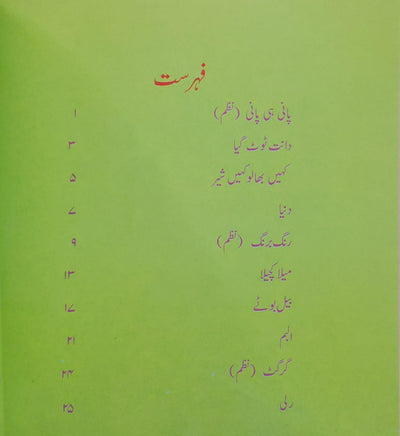 فہرست
پانی ہی پانی (نظم) ۱
دانت ٹوٹ گیا ۳
کہیں بھالو کہیں شیر ۵
دنیا ۷
رنگ برنگ (نظم) ۹
میلا کچیلا ۱۳
بیل بوٹے ۱۷
البم ۲۱
گرگٹ (نظم) ۲۴
رلی ۲۵